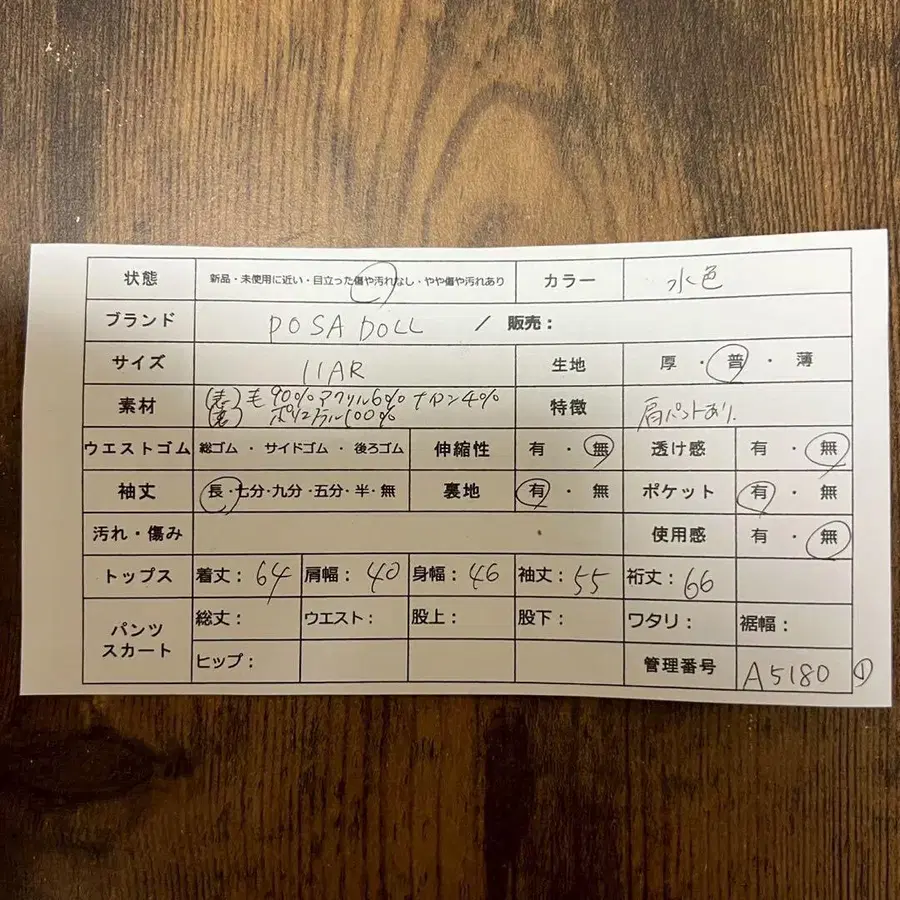 状態 新品・未使用に近い・目立った傷や汚れなし・やや傷や汚れあり カラー 水色
ブランド POSA DOLL / 販売：
サイズ 11AR 生地 厚・普・薄
素材 (表) 毛90% アクリル6% ナイロン4% 特徴 肩パットあり.
(裏) ポリエステル100%
ウエストゴム 総ゴム・サイドゴム・後ろゴム 伸縮性 有・無 透け感 有・無
袖丈 長・七分・九分・五分・半・無 裏地 有・無 ポケット 有・無
汚れ・傷み 使用感 有・無
トップス 着丈：64 肩幅：40 身幅：46 袖丈：55 裄丈：66
パンツ 総丈： ウエスト： 股上： 股下： ワタリ： 裾幅：
スカート ヒップ： 管理番号 A5180 ①